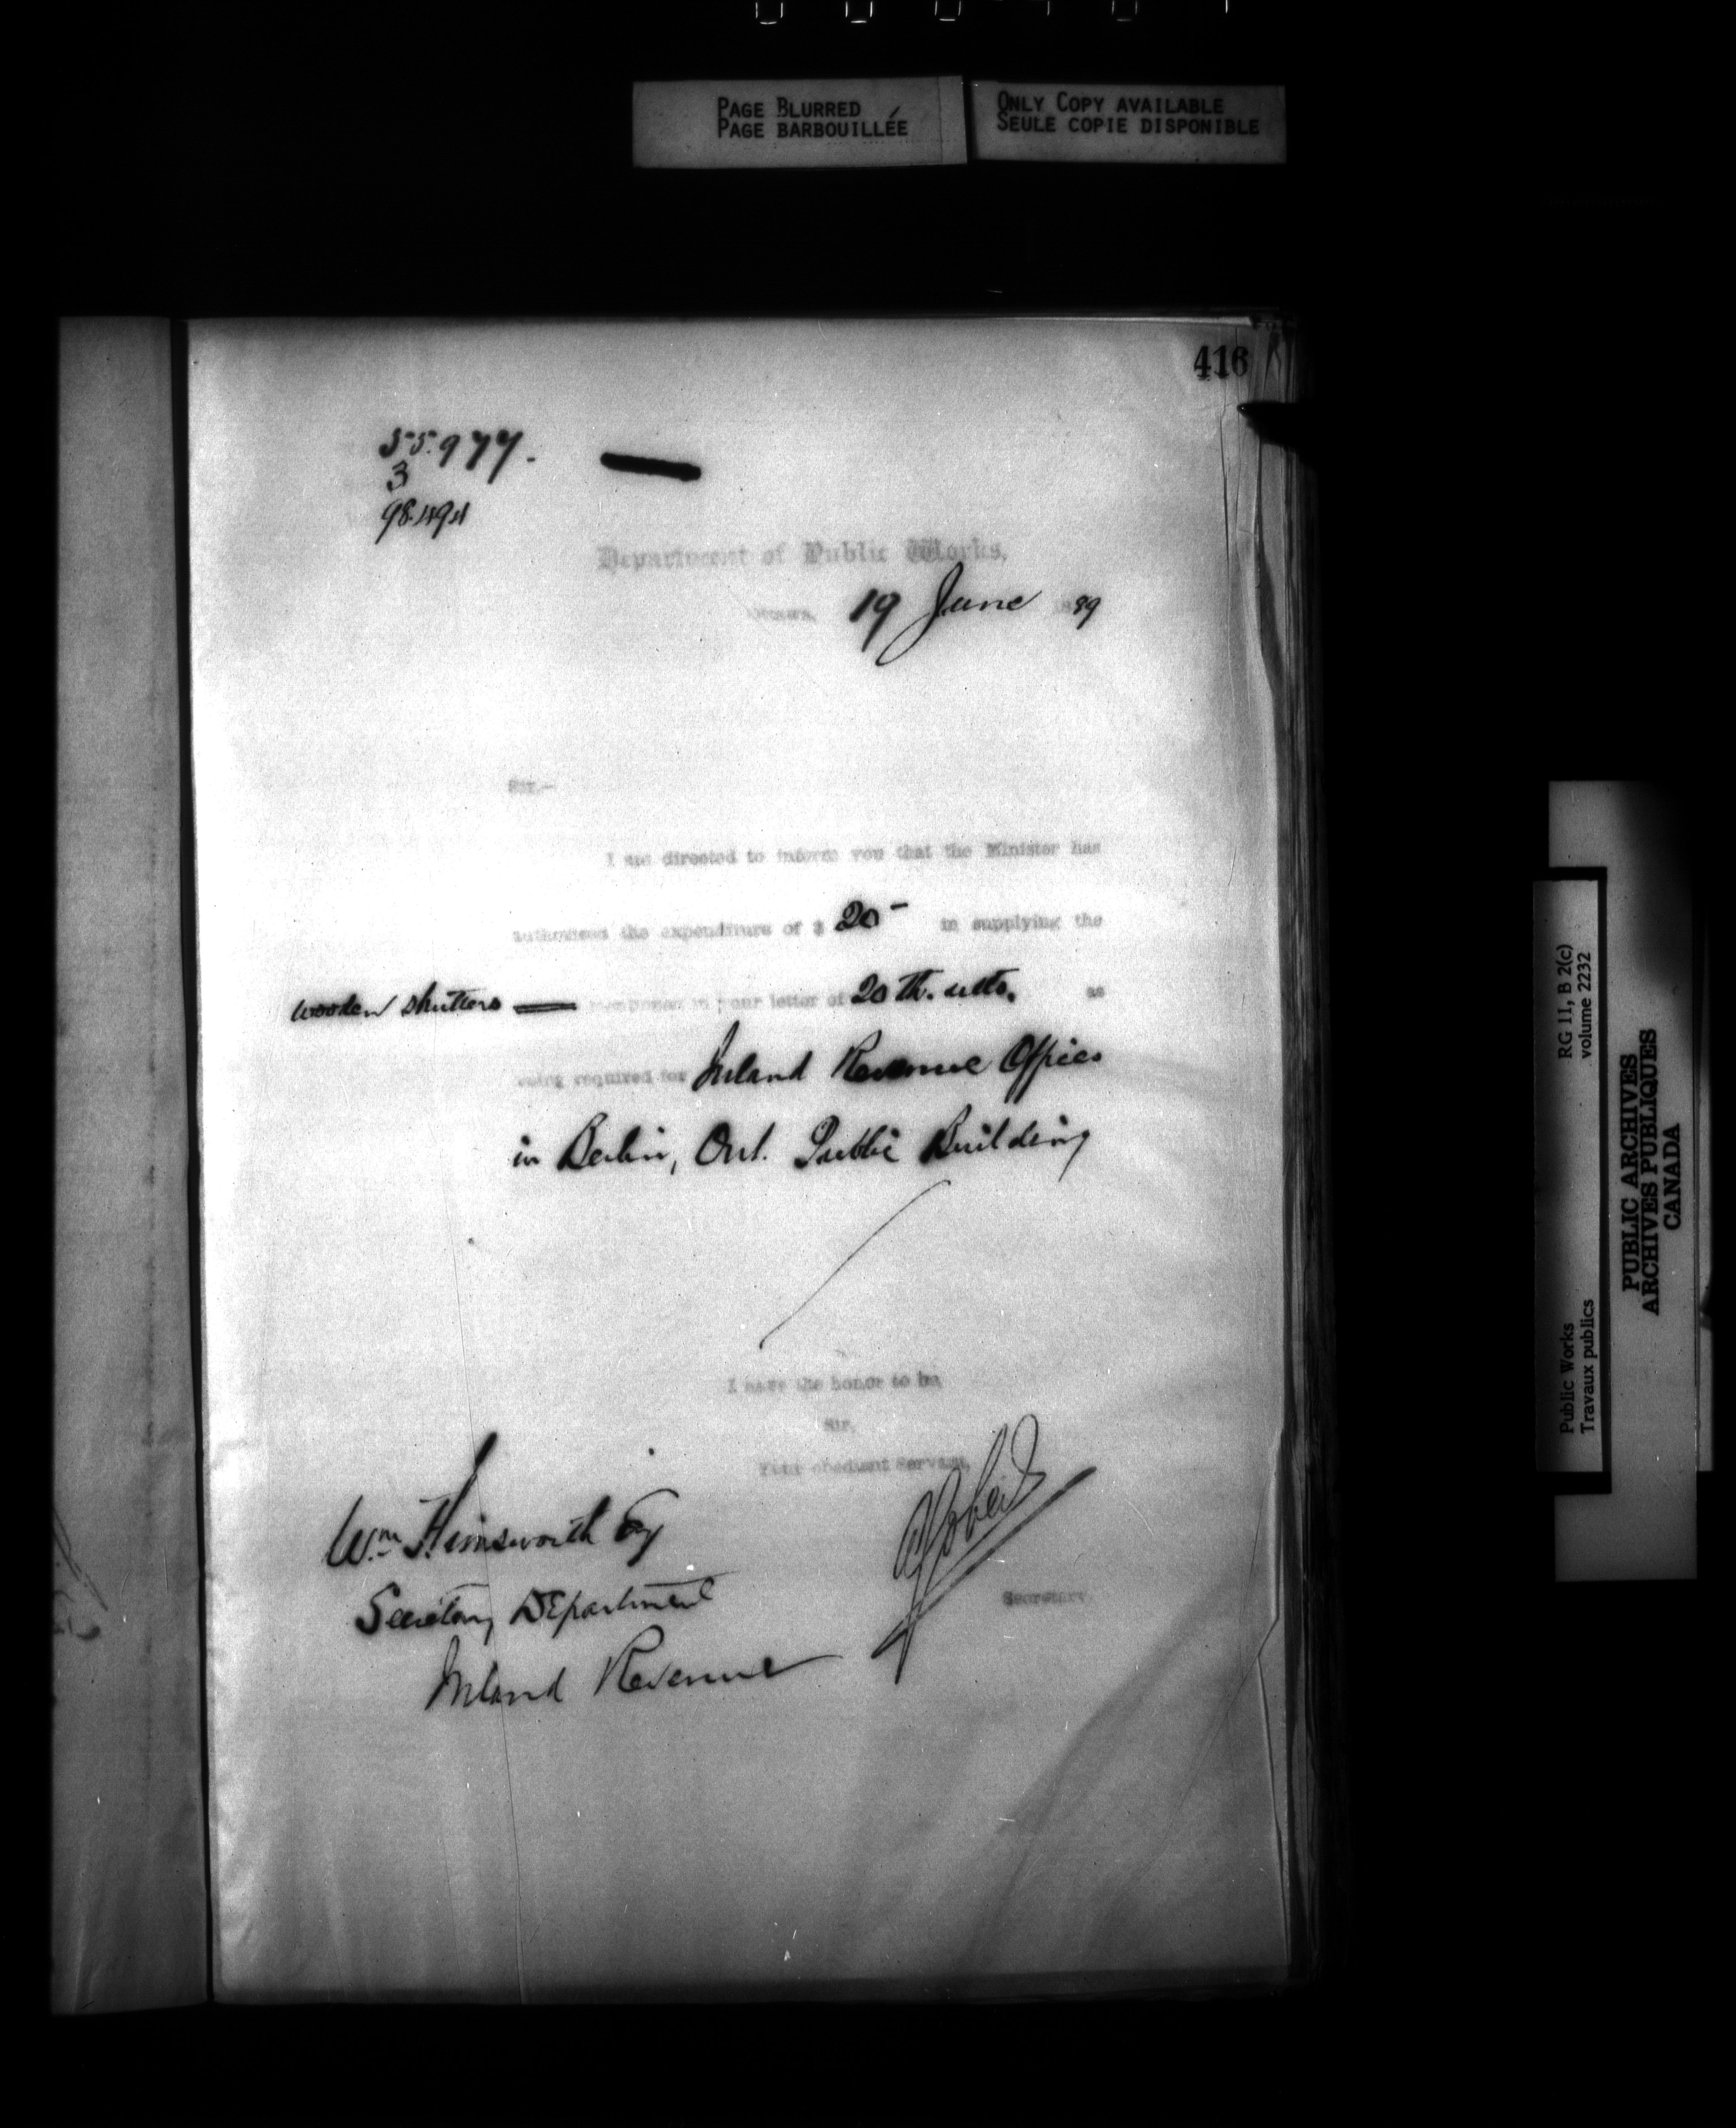 PAGE BLURRED
PAGE BARBOUILLÉE
ONLY COPY AVAILABLE
SEULE COPIE DISPONIBLE
416
55.977.
3
98.494
Department of Public Works,
Ottawa, 19 June 1889
Sir,—
I am directed to inform you that the Minister has
authorised the expenditure of $ 20- in supplying the
wooden shutters mentioned in your letter of 20th. ulto. as
being required for Inland Revenue Offices
in Berlin, Ont. Public Building
I have the honor to be,
Sir,
Your obedient servant,
Wm Himsworth Esq
Secretary Department
Inland Revenue
Secretary.
RG 11, B 2(c)
volume 2232
Public Works
Travaux publics
PUBLIC ARCHIVES
ARCHIVES PUBLIQUES
CANADA